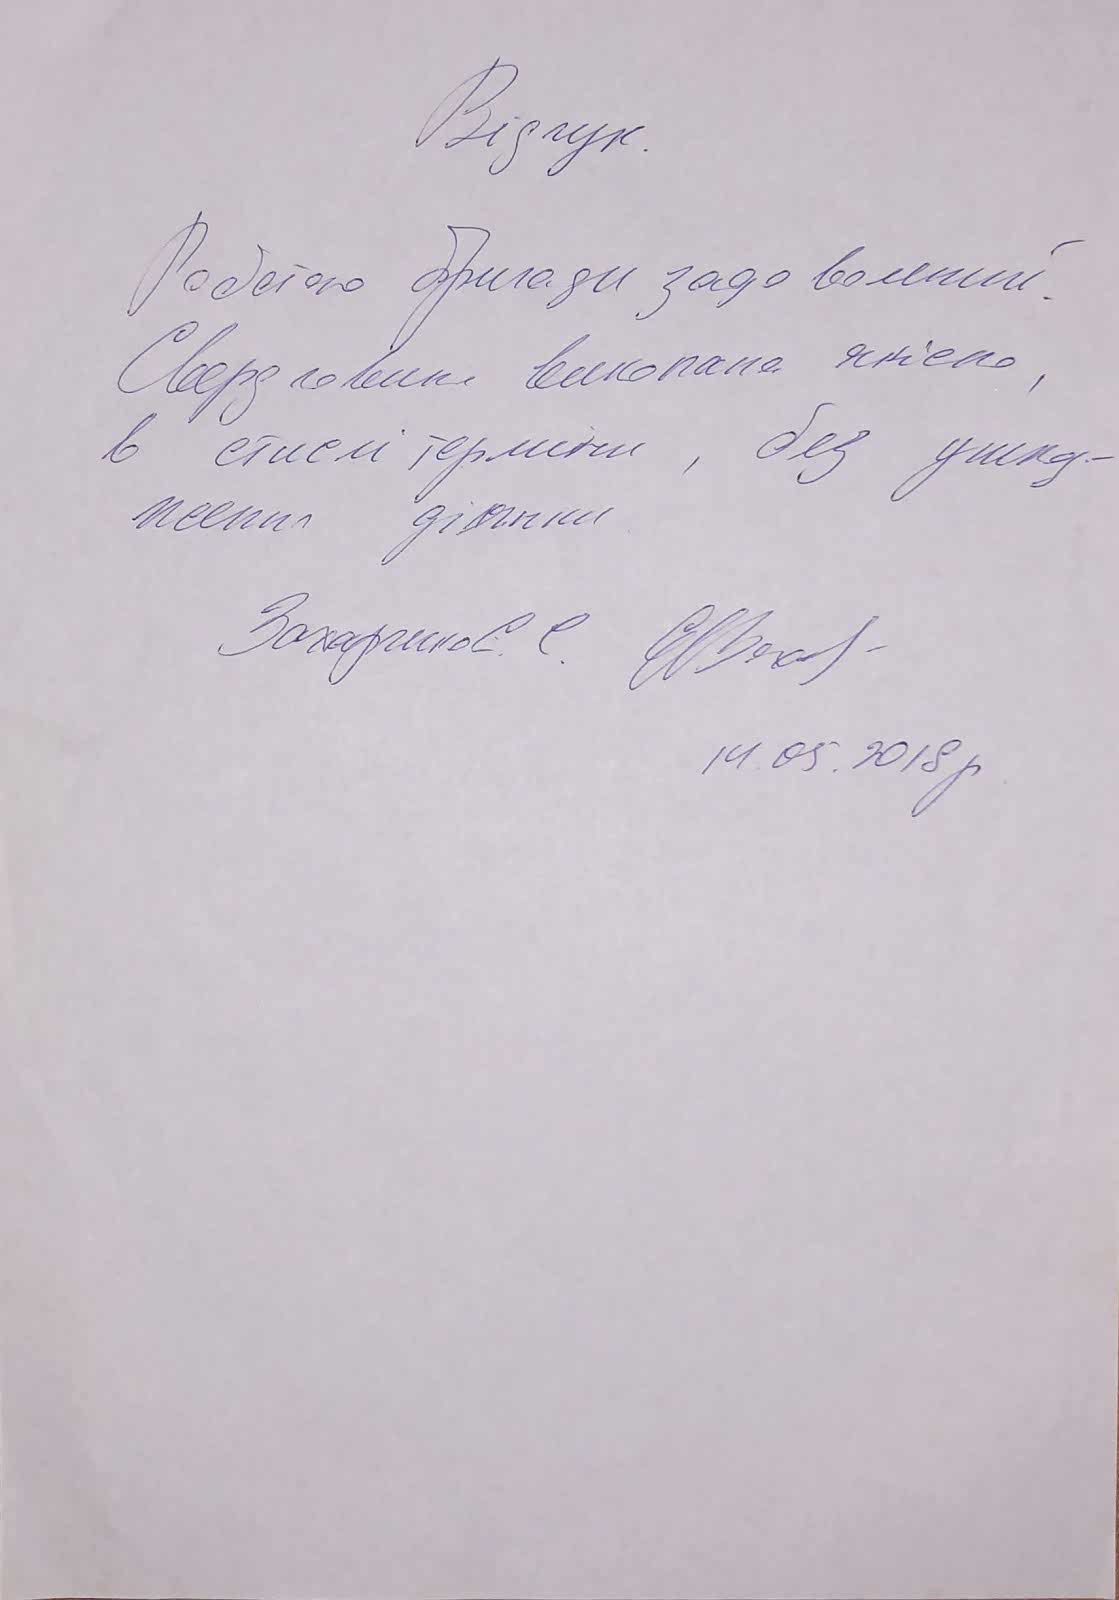 Відгук.
Роботою бригади задоволений.
Свердловина виконана якісно,
в стислі терміни, без ушкод-
ження ділянки
Захарченко Є. Є.
14.05.2018р